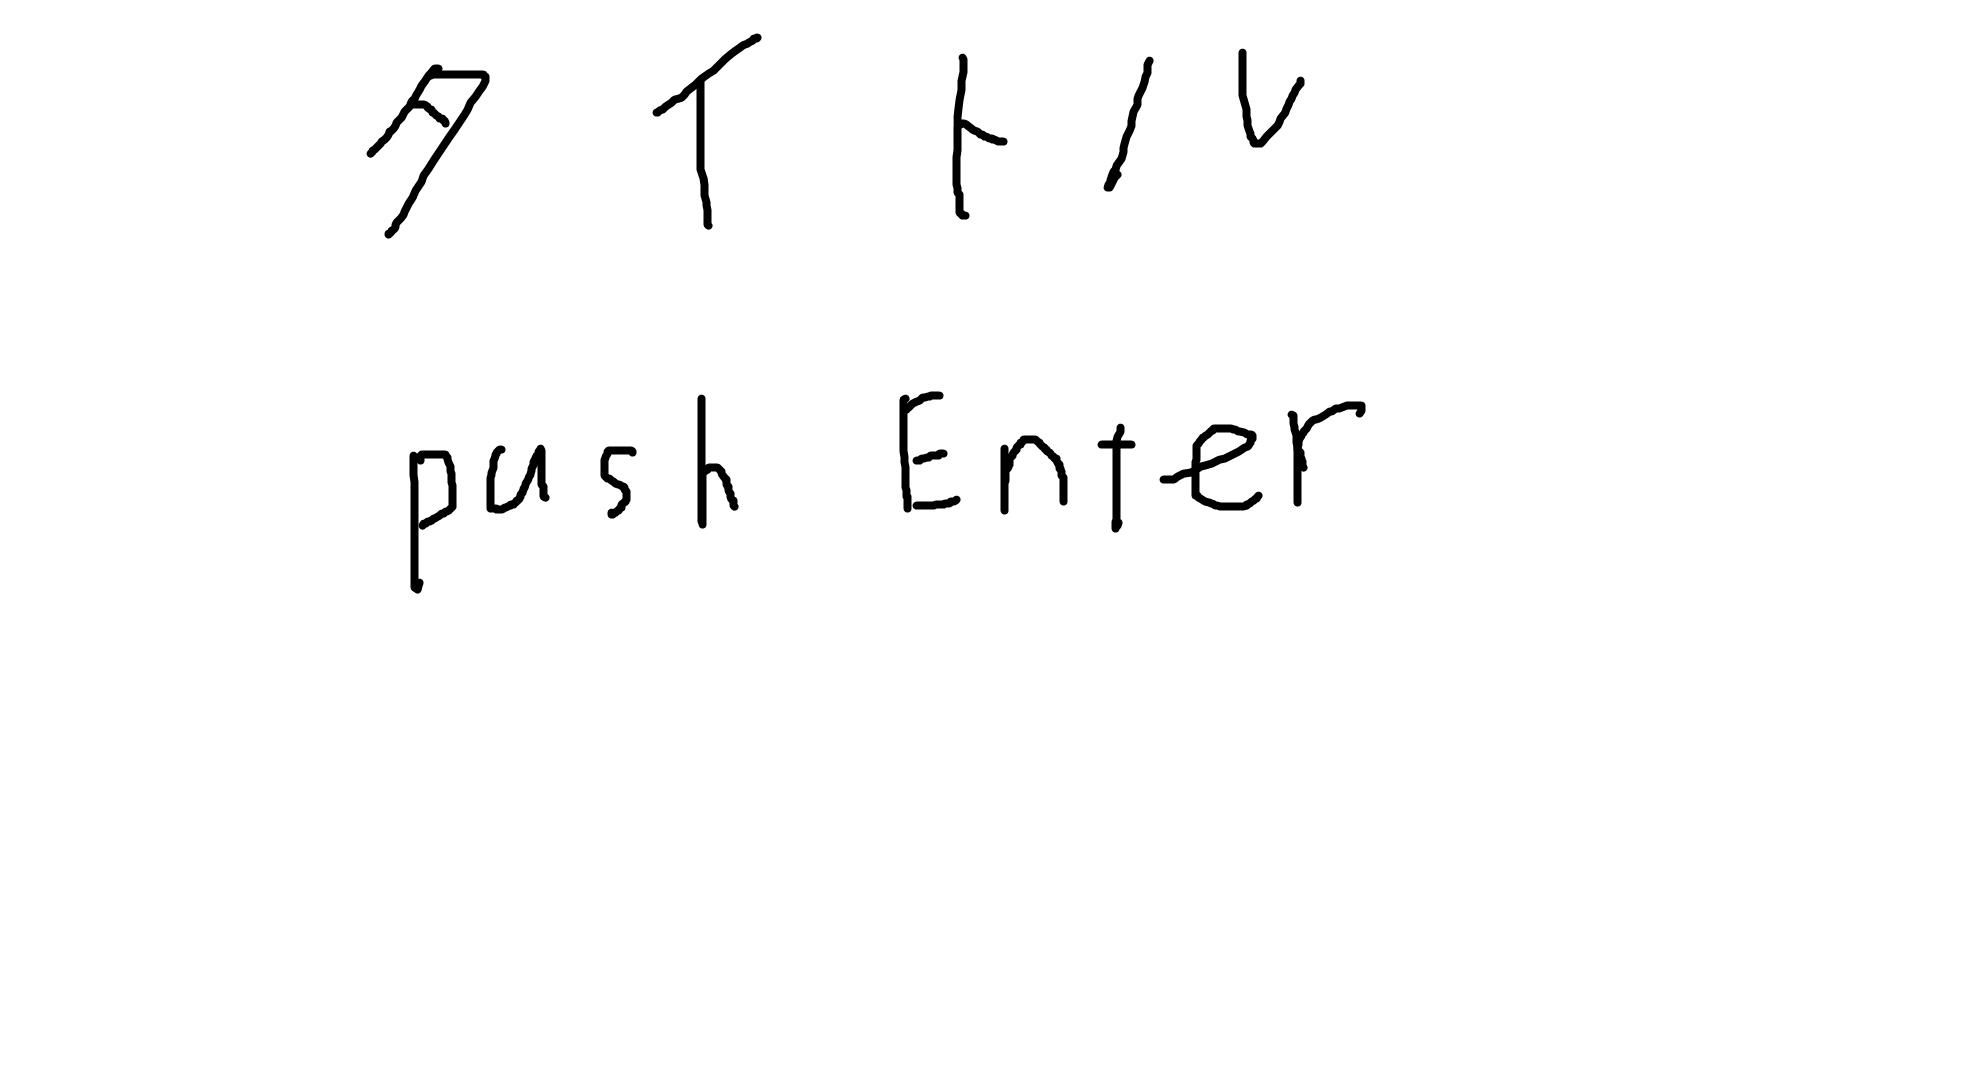 タイトル
push Enter